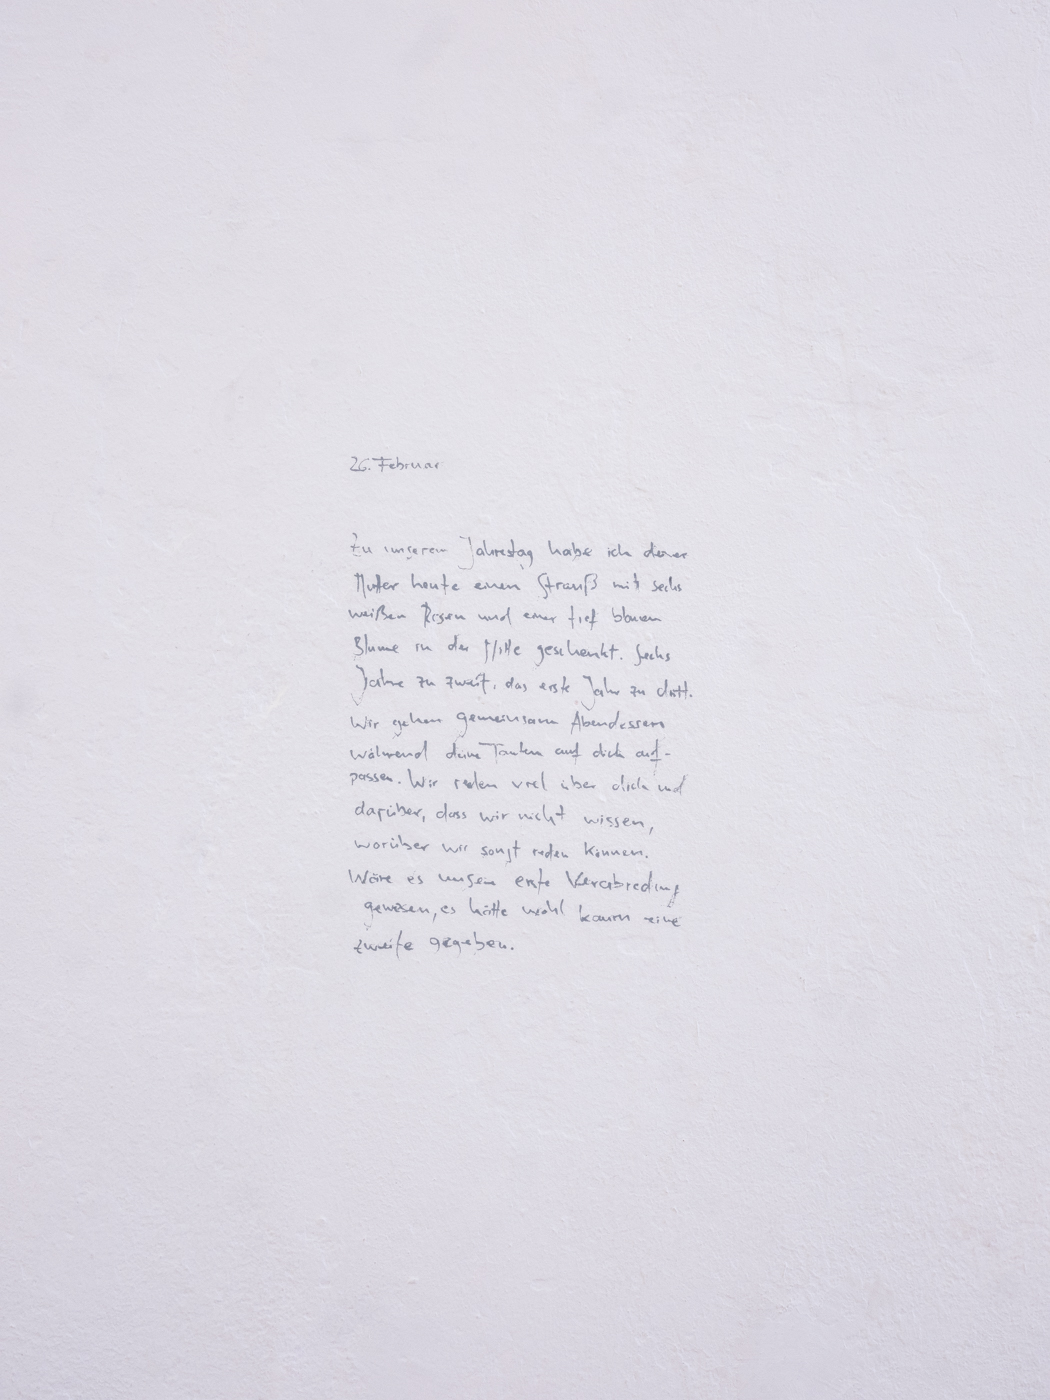 26. Februar
Zu unserem Jahrestag habe ich deiner
Mutter heute einen Strauß mit sechs
weißen Rosen und einer tief blauen
Blume in der Mitte geschenkt. Sechs
Jahre zu zweit, das erste Jahr zu dritt.
Wir gehen gemeinsam Abendessen
während deine Tanten auf dich auf-
passen. Wir reden viel über dich und
darüber, dass wir nicht wissen,
worüber wir sonst reden können.
Wäre es unsere erste Verabredung
gewesen, es hätte wohl kaum eine
zweite gegeben.